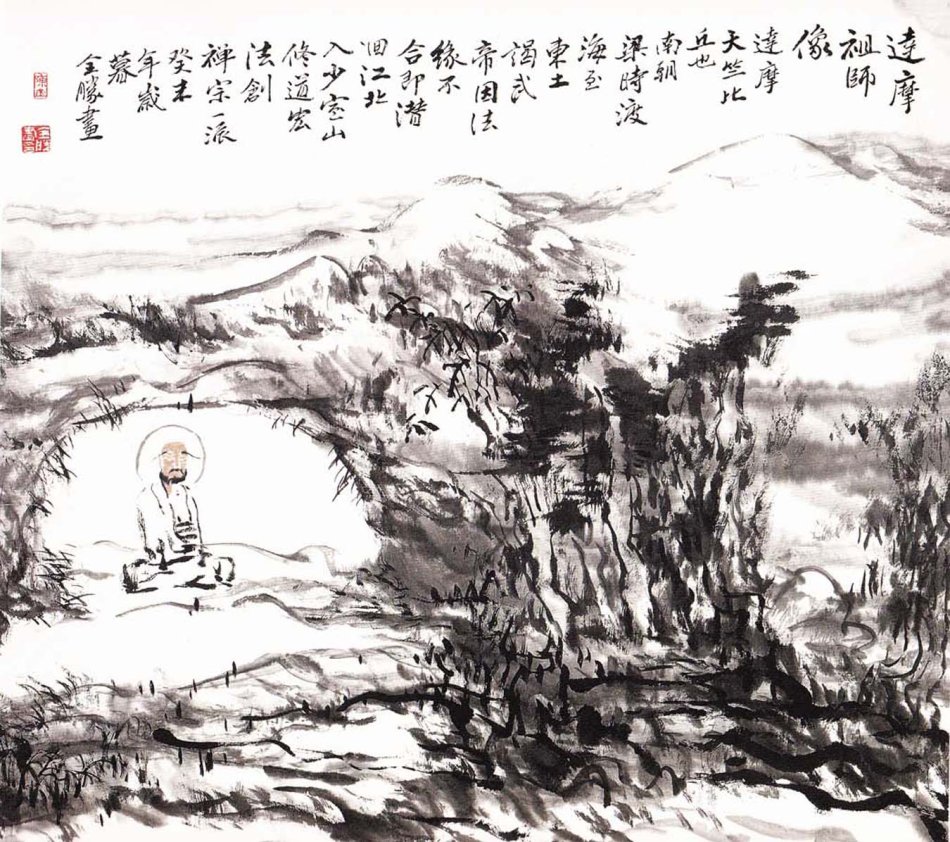 達摩
祖師
像
達摩
天竺比
丘也
南朝
梁時渡
海至
東土
謁武
帝因法
緣不
合即潜
洄江北
入少室山
修道宏
法創
禅宗一派
癸未
年歲
暮
全勝畫